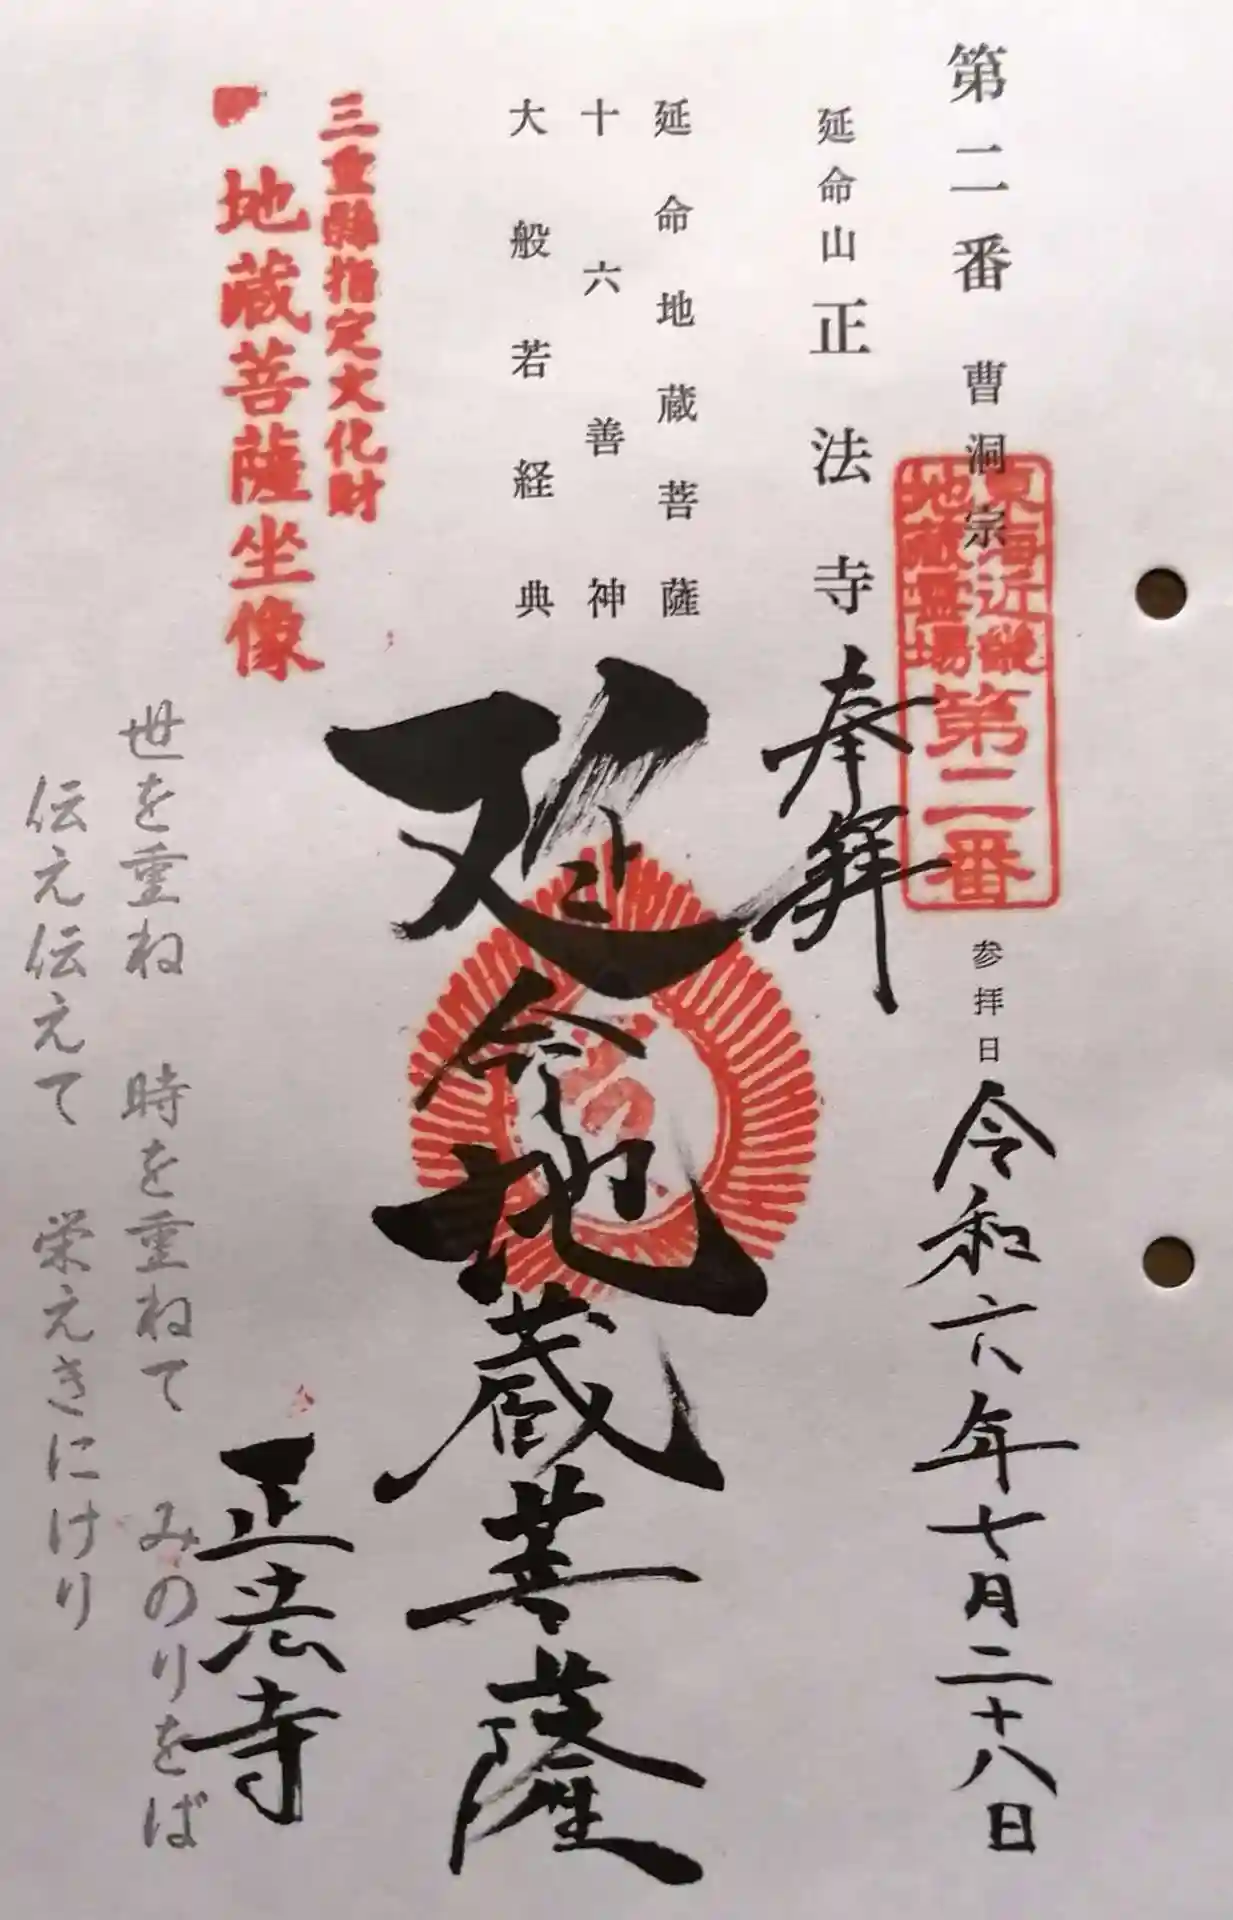 第二番 曹洞宗
参拝日 令和六年七月二十八日
東海近畿
地蔵霊場
第二番
延命山正法寺
奉拜
延命地蔵菩薩
十六善神
大般若経典
延命地蔵菩薩
三重縣指定文化財
地蔵菩薩坐像
正法寺
世を重ね 時を重ねて みのりをば
伝え伝えて 栄えきにけり